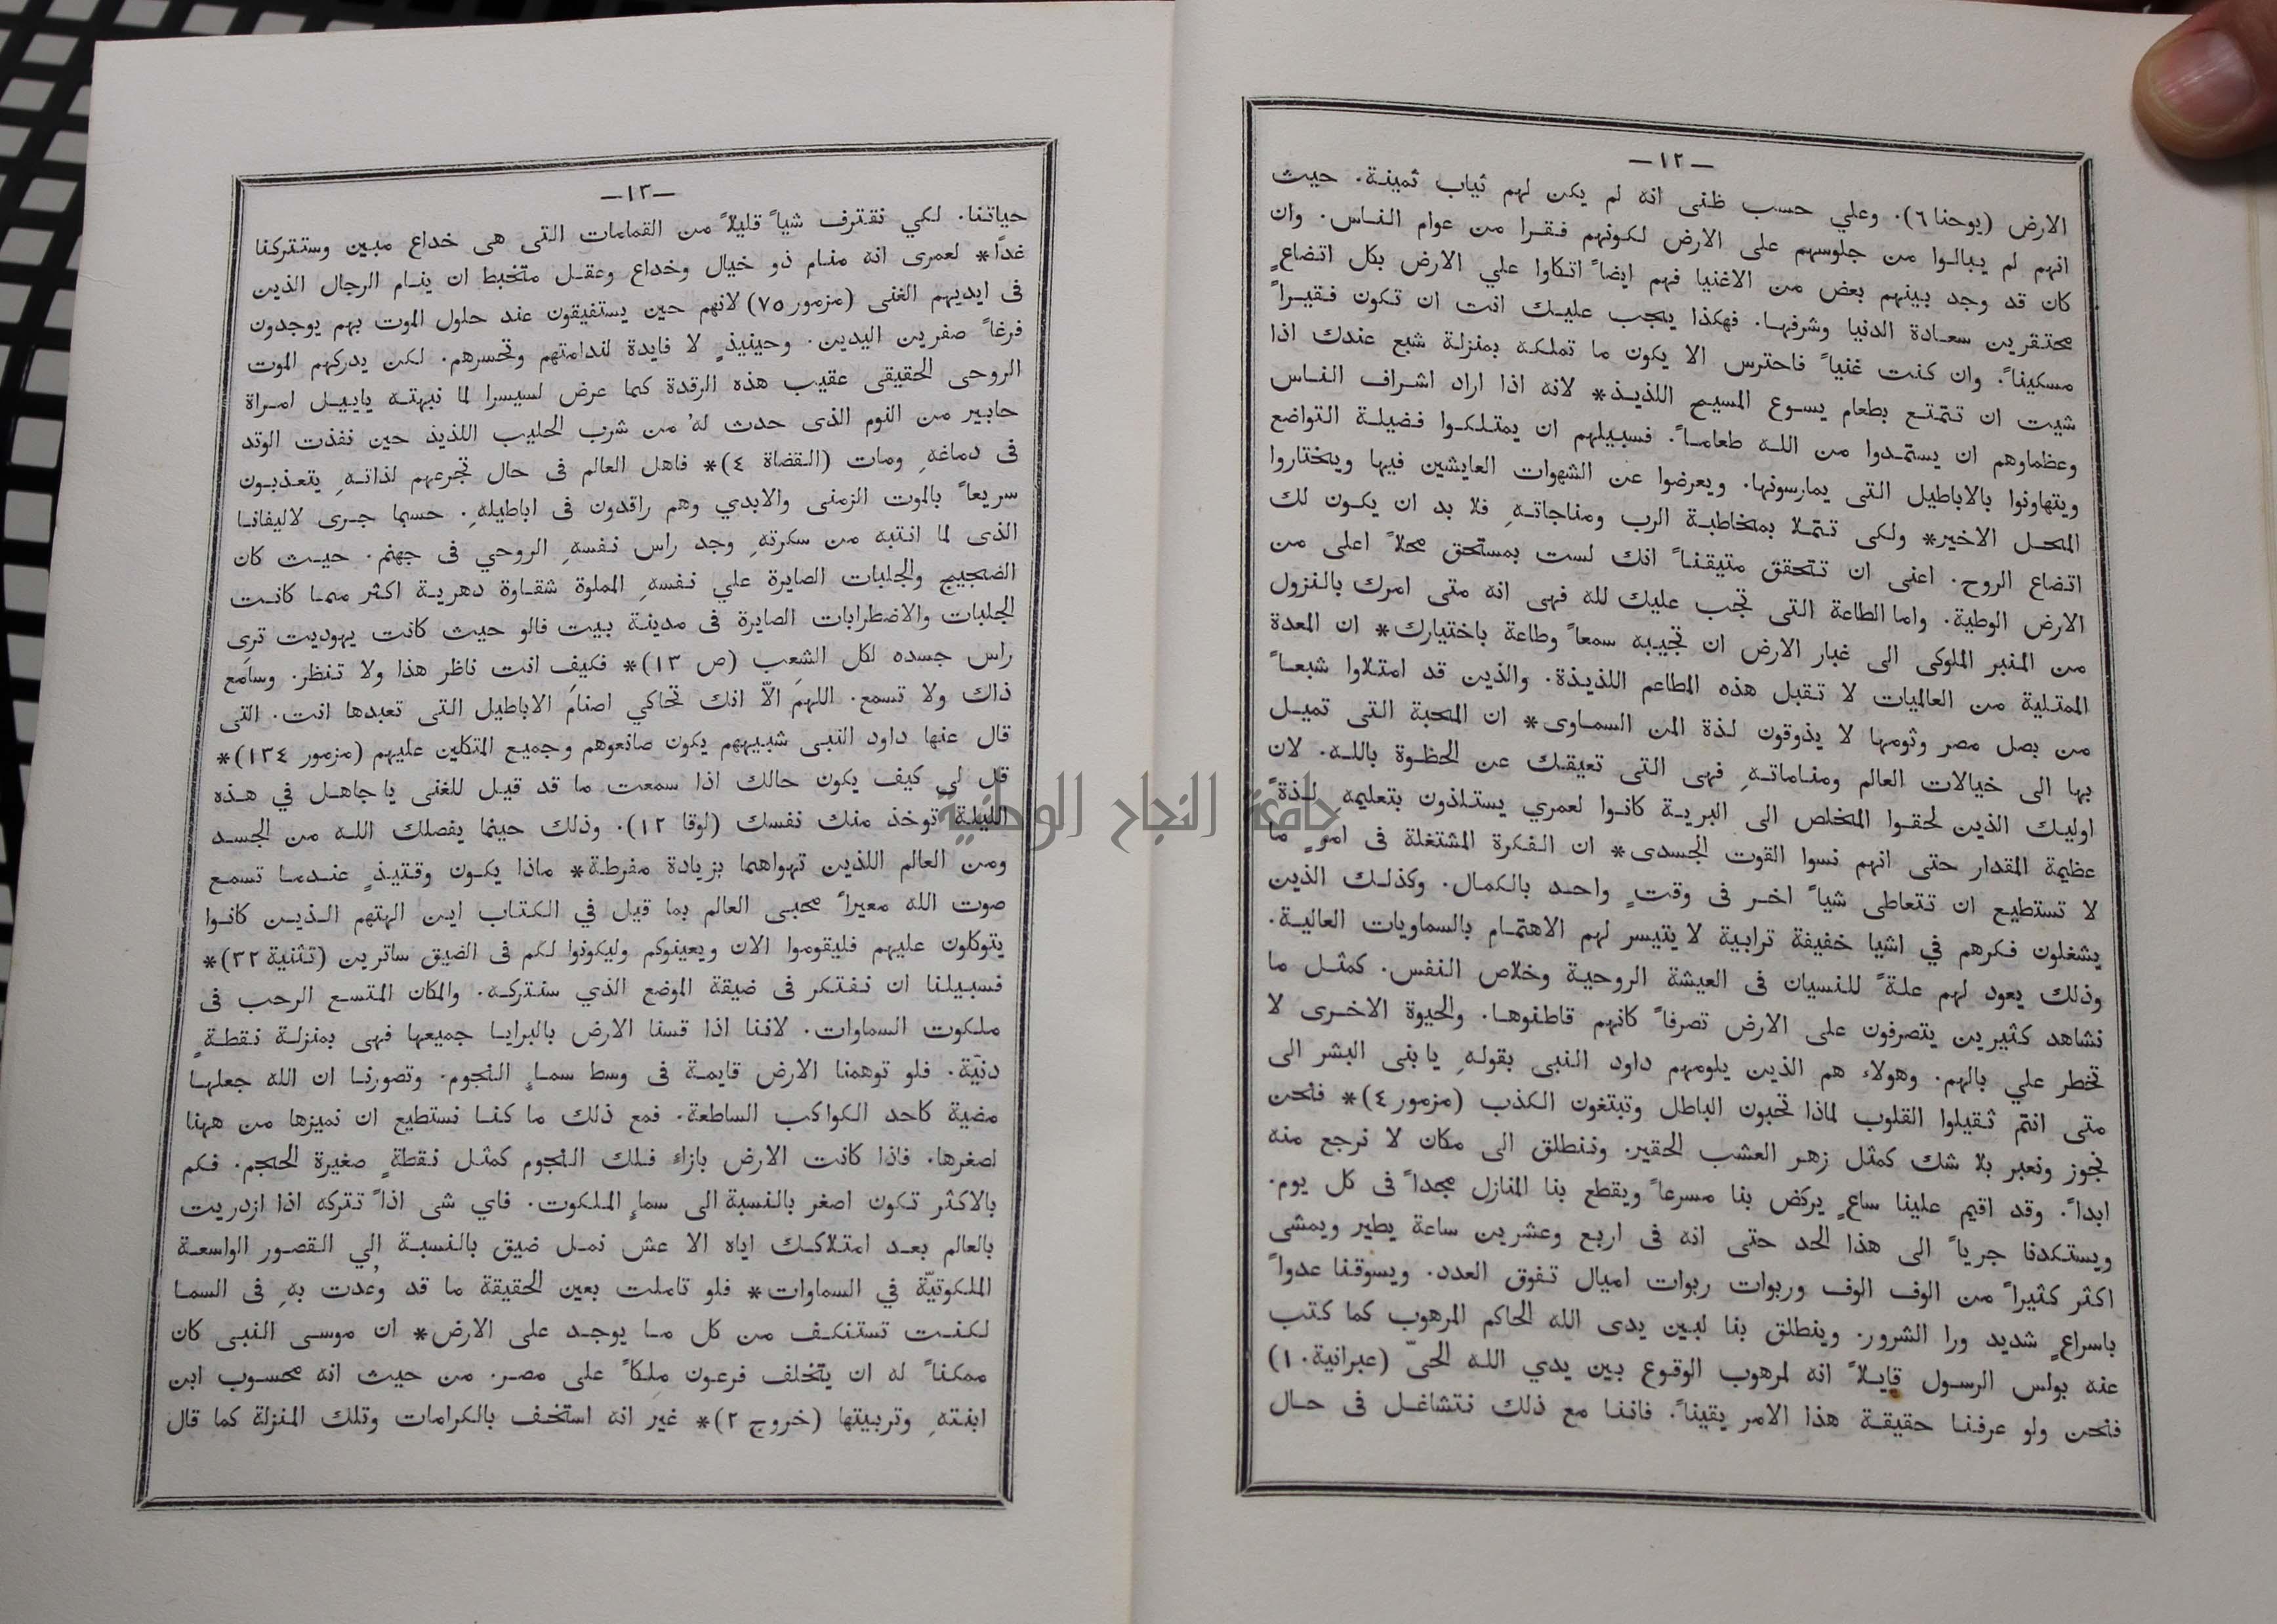 —١٢—
الارض (يوحنا ٦). وعلي حسب ظنى انه لم يكن لهم ثياب ثمينة. حيث
انهم لم يبالوا من جلوسهم على الارض لكونهم فقرا من عوام الناس. وان
كان قد وجد بينهم بعض من الاغنيا فهم ايضاً اتكاوا علي الارض بكل اتضاعٍ
محتقرين سعادة الدنيا وشرفها. فهكذا يجب عليك انت ان تكون فقيراً
مسكيناً. وان كنت غنياً فاحترس الا يكون ما تملكه بمنزلة شبع عندك اذا
شيت ان تتمتع بطعام يسوع المسيح اللذيذ* لانه اذا اراد اشراف الناس
وعظماوهم ان يستمدوا من الله طعاماً. فسبيلهم ان يمتلكوا فضيلة التواضع
ويتهاونوا بالاباطيل التى يمارسونها. ويعرضوا عن الشهوات العايشين فيها ويختاروا
المحل الاخير* ولكى تتملا بمخاطبة الرب ومناجاتهِ فلا بد ان يكون لك
اتضاع الروح. اعنى ان تتحقق متيقناً انك لست بمستحق محلاً اعلى من
الارض الوطية. واما الطاعة التى تجب عليك لله فهى انه متى امرك بالنزول
من المنبر الملوكى الى غبار الارض ان تجيبه سمعاً وطاعة باختيارك* ان المعدة
الممتلية من العالميات لا تقبل هذه المطاعم اللذيذة. والذين قد امتلاوا شبعاً
من بصل مصر وثومها لا يذوقون لذة المن السماوى* ان المحبة التى تميل
بها الى خيالات العالم ومناماتهِ فهى التى تعيقك عن الحظوة بالله. لان
اوليك الذين لحقوا المخلص الى البرية كانوا لعمري يستلذون بتعليمهِ لذةً
عظيمة المقدار حتى انهم نسوا القوت الجسدى* ان الفكرة المشتغلة فى امرٍ ما
لا تستطيع ان تتعاطى شياً اخر فى وقتٍ واحد بالكمال. وكذلك الذين
يشغلون فكرهم في اشيا خفيفة ترابية لا يتيسر لهم الاهتمام بالسماويات العالية.
وذلك يعود لهم علةً للنسيان فى العيشة الروحية وخلاص النفس. كمثل ما
نشاهد كثيرين يتصرفون على الارض تصرفاً كانهم قاطنوها. والحيوة الاخرى لا
تخطر علي بالهم. وهولاء هم الذين يلومهم داود النبى بقولهِ يا بنى البشر الى
متى انتم ثقيلوا القلوب لماذا تحبون الباطل وتبتغون الكذب (مزمور ٤)* فنحن
نجوز ونعبر بلا شك كمثل زهر العشب الحقير. وننطلق الى مكان لا نرجع منه
ابداً. وقد اقيم علينا ساعٍ يركض بنا مسرعاً ويقطع بنا المنازل مجداً فى كل يوم.
ويستكدنا جرياً الى هذا الحد حتى انه فى اربع وعشرين ساعة يطير ويمشى
اكثر كثيراً من الوف الوف وربوات ربوات اميال تفوق العدد. ويسوقنا عدواً
باسراعٍ شديد ورا الشرور. وينطلق بنا لبين يدى الله الحاكم المرهوب كما كتب
عنه بولس الرسول قايلاً انه لمرهوب الوقوع بين يدي الله الحىّ (عبرانية ١٠)
فنحن ولو عرفنا حقيقة هذا الامر يقيناً. فاننا مع ذلك نتشاغل فى حال
—١٣—
حياتنا. لكي نقترف شياً قليلاً من القمامات التى هى خداع مبين وستتركنا
غداً* لعمرى انه منام ذو خيال وخداع وعقل متخبط ان ينام الرجال الذين
فى ايديهم الغنى (مزمور ٧٥) لانهم حين يستفيقون عند حلول الموت بهم يوجدون
فرغاً صفرين اليدين. وحينيذٍ لا فايدة لندامتهم وتحسرهم. لكن يدركهم الموت
الروحى الحقيقى عقيب هذه الرقدة كما عرض لسيسرا لما نبهته ياييل امراة
حابير من النوم الذى حدث لهُ من شرب الحليب اللذيذ حين نفذت الوتد
فى دماغهِ ومات (القضاة ٤)* فاهل العالم فى حال تجرعهم لذاتهِ يتعذبون
سريعاً بالموت الزمنى والابدي وهم راقدون فى اباطيلهِ. حسبما جرى لاليفانا
الذى لما انتبه من سكرتهِ وجد راس نفسهِ الروحي فى جهنم. حيث كان
الضجيج والجلبات الصايرة علي نفسهِ المملوة شقاوة دهرية اكثر مما كانت
الجلبات والاضطرابات الصايرة فى مدينة بيت فالو حيث كانت يهوديت ترى
راس جسده لكل الشعب (ص ١٣)* فكيف انت ناظر هذا ولا تنظر. وسامع
ذاك ولا تسمع. اللهم الّا انك تحاكي اصنام الاباطيل التى تعبدها انت. التى
قال عنها داود النبى شبيههم يكون صانعوهم وجميع المتكلين عليهم (مزمور ١٣٤)*
قل لي كيف يكون حالك اذا سمعت ما قد قيل للغنى يا جاهل في هذه
الليلة توخذ منك نفسك (لوقا ١٢). وذلك حينما يفصلك الله من الجسد
ومن العالم اللذين تهواهما بزيادة مفرطة* ماذا يكون وقتيذٍ عندما تسمع
صوت الله معيراً محبى العالم بما قيل في الكتاب اين الهتهم الذين كانوا
يتوكلون عليهم فليقوموا الان ويعينوكم وليكونوا لكم فى الضيق ساترين (تثنية ٣٢)*
فسبيلنا ان نفتكر فى ضيقة الموضع الذي سنتركه. والمكان المتسع الرحب فى
ملكوت السماوات. لاننا اذا قسنا الارض بالبرايا جميعها فهى بمنزلة نقطةٍ
دنيّة. فلو توهمنا الارض قايمة فى وسط سماءِ النجوم. وتصورنا ان الله جعلها
مضية كاحد الكواكب الساطعة. فمع ذلك ما كنا نستطيع ان نميزها من ههنا
لصغرها. فاذا كانت الارض بازاء فلك النجوم كمثل نقطةٍ صغيرة الحجم. فكم
بالاكثر تكون اصغر بالنسبة الى سماءِ الملكوت. فاي شى اذاً تتركه اذا ازدريت
بالعالم بعد امتلاكك اياه الا عش نمل ضيق بالنسبة الي القصور الواسعة
الملكوتيّة في السماوات* فلو تاملت بعين الحقيقة ما قد وُعدت بهِ فى السما
لكنت تستنكف من كل ما يوجد على الارض* ان موسى النبى كان
ممكناً له ان يتخلف فرعون ملكاً على مصر. من حيث انه محسوب ابن
ابنتهِ وتربيتها (خروج ٢)* غير انه استخف بالكرامات وتلك المنزلة كما قال
جامعة النجاح الوطنية